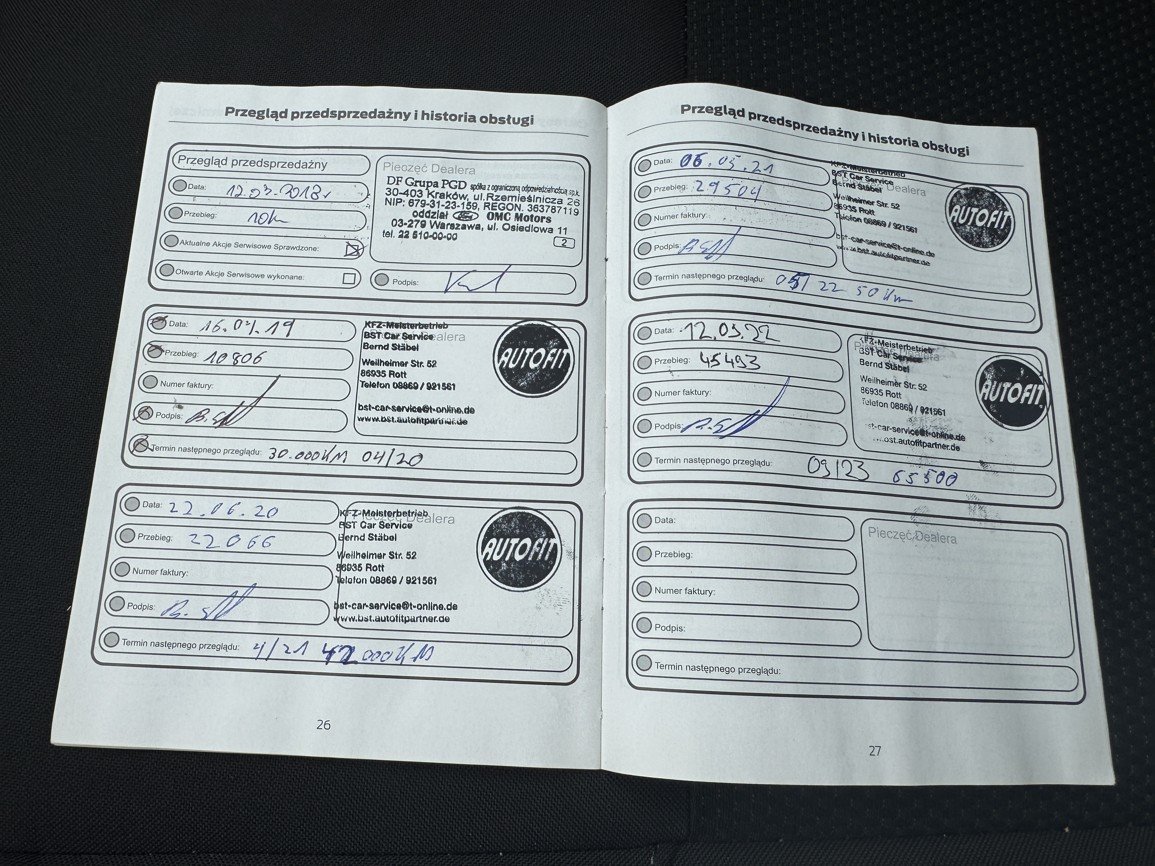 Przegląd przedsprzedażny i historia obsługi
Przegląd przedsprzedażny
Data: 12.07.2018r
Przebieg: 10km
Aktualne Akcje Serwisowe Sprawdzone:
Otwarte Akcje Serwisowe wykonane:
Pieczęć Dealera
DF Grupa PGD spółka z ograniczoną odpowiedzialnością sp.k.
30-403 Kraków, ul.Rzemieślnicza 26
NIP: 679-31-23-159, REGON. 363787119
oddział Ford OMC Motors
03-279 Warszawa, ul. Osiedlowa 11
tel. 22 510-00-00
2
Podpis:
Data: 16.04.19
Przebieg: 10806
Numer faktury:
Podpis:
Pieczęć Dealera
KFZ-Meisterbetrieb
BST Car Service
Bernd Stäbel
Weilheimer Str. 52
86935 Rott
Telefon 08869 / 921561
bst-car-service@t-online.de
www.bst.autofitpartner.de
AUTOFIT
Termin następnego przeglądu: 30.000KM 04/20
Data: 22.06.20
Przebieg: 22066
Numer faktury:
Podpis:
Pieczęć Dealera
KFZ-Meisterbetrieb
BST Car Service
Bernd Stäbel
Weilheimer Str. 52
86935 Rott
Telefon 08869 / 921561
bst-car-service@t-online.de
www.bst.autofitpartner.de
AUTOFIT
Termin następnego przeglądu: 4/21 42000KM
26
Przegląd przedsprzedażny i historia obsługi
Data: 06.05.21
Przebieg: 29504
Numer faktury:
Podpis:
Pieczęć Dealera
KFZ-Meisterbetrieb
BST Car Service
Bernd Stäbel
Weilheimer Str. 52
86935 Rott
Telefon 08869 / 921561
bst-car-service@t-online.de
www.bst.autofitpartner.de
AUTOFIT
Termin następnego przeglądu: 05/22 50km
Data: 12.09.22
Przebieg: 45493
Numer faktury:
Podpis:
KFZ-Meisterbetrieb
BST Car Service
Bernd Stäbel
Weilheimer Str. 52
86935 Rott
Telefon 08869 / 921561
bst-car-service@t-online.de
bst.autofitpartner.de
AUTOFIT
Termin następnego przeglądu: 09/23 65500
Data:
Przebieg:
Numer faktury:
Podpis:
Pieczęć Dealera
Termin następnego przeglądu:
27